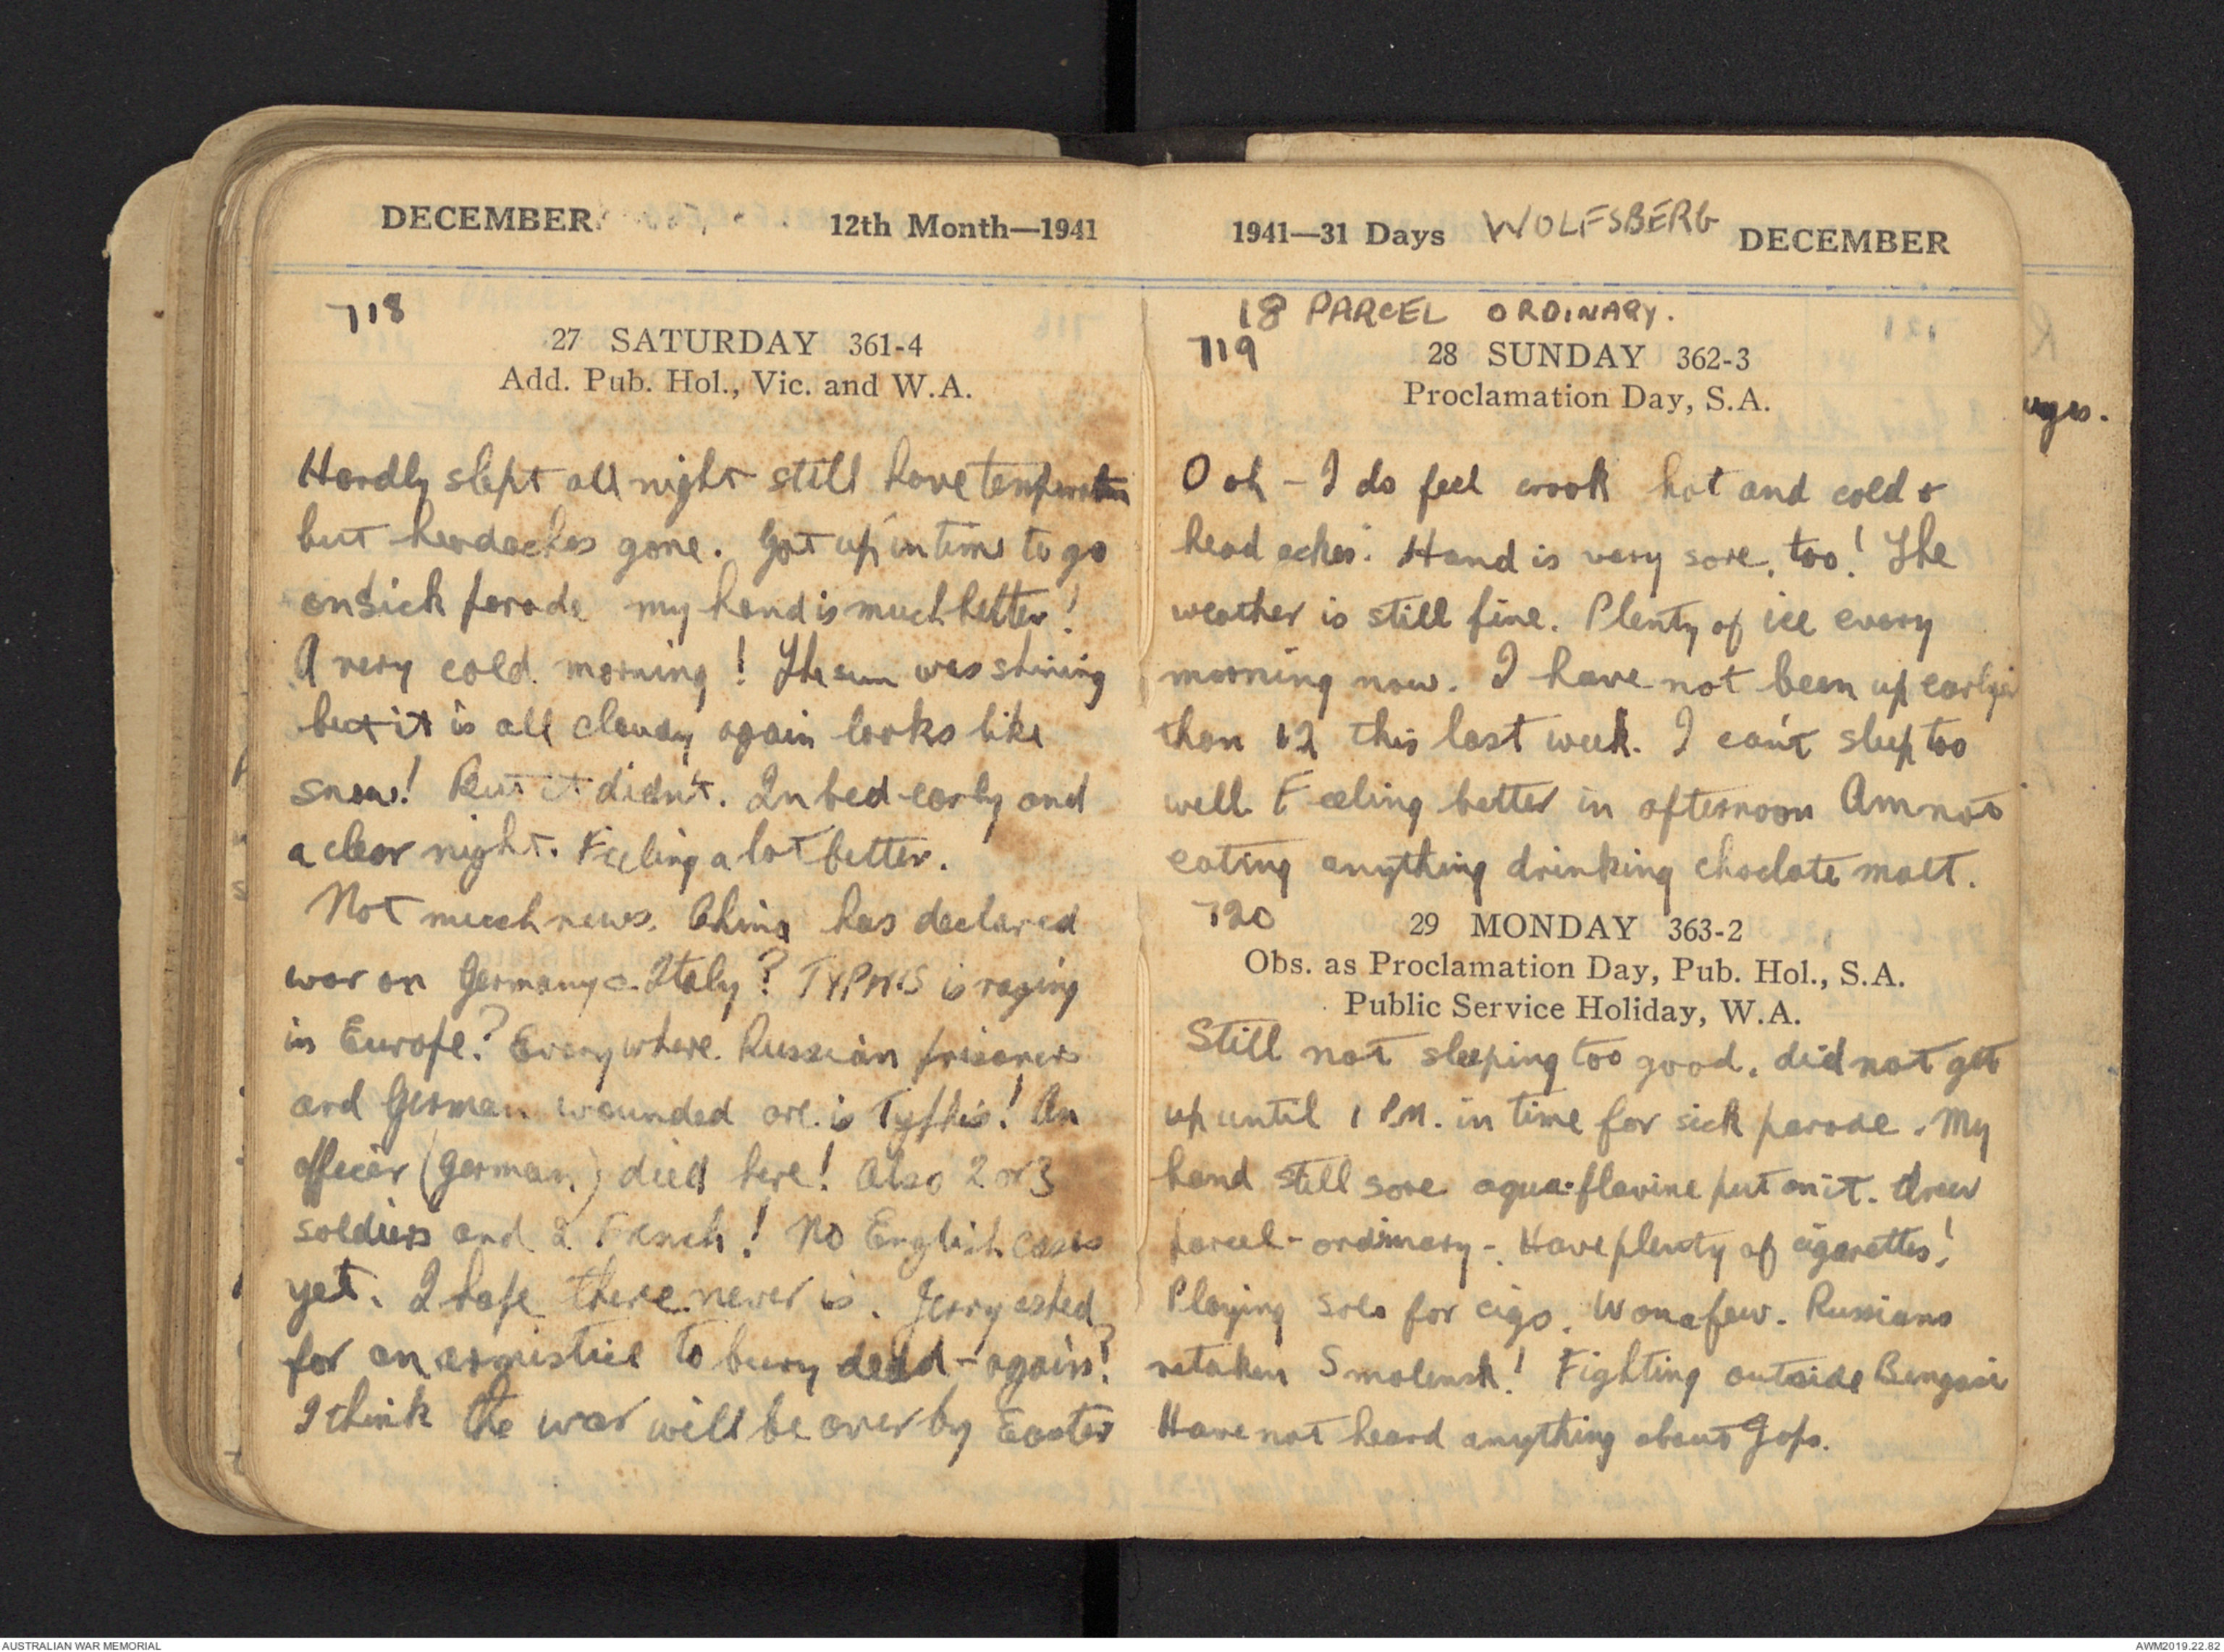 DECEMBER 12th Month—1941
718
27 SATURDAY 361-4
Add. Pub. Hol., Vic. and W.A.
Hardly slept all night still have temperature
but headaches gone. Got up in time to go
on sick parade my hand is much better!
A very cold morning! The sun was shining
but it is all cloudy again looks like
snow! But it didn't. In bed early and
a clear night. Feeling a lot better.
Not much news. China has declared
war on Germany & Italy? TYPHUS is raging
in Europe? Everywhere. Russian prisoners
and German wounded are is Tyffis! An
officer (German) died here! Also 2 or 3
soldiers and 2 French! No English cases
yet. I hope there never is. Jerry asked
for an armistice to bury dead - again?
I think the war will be over by Easter
1941—31 Days WOLFSBERG DECEMBER
18 PARCEL ORDINARY.
719
28 SUNDAY 362-3
Proclamation Day, S.A.
Ooh - I do feel crook hot and cold &
head aches. Hand is very sore, too! The
weather is still fine. Plenty of ice every
morning now. I have not been up earlier
than 12 this last week. I can't sleep too
well. Feeling better in afternoon Am not
eating anything drinking choclate malt.
720
29 MONDAY 363-2
Obs. as Proclamation Day, Pub. Hol., S.A.
Public Service Holiday, W.A.
Still not sleeping too good. did not get
up until 1 P.M. in time for sick parade. My
hand still sore aqua-flavine put on it. Drew
parcel - ordinary -. Have plenty of cigarettes!
Playing solo for cigs. Won a few. Russians
retaken Smolensk! Fighting outside Bengasi
Have not heard anything about Japs.
uges.
AUSTRALIAN WAR MEMORIAL
AWM2019.22.82